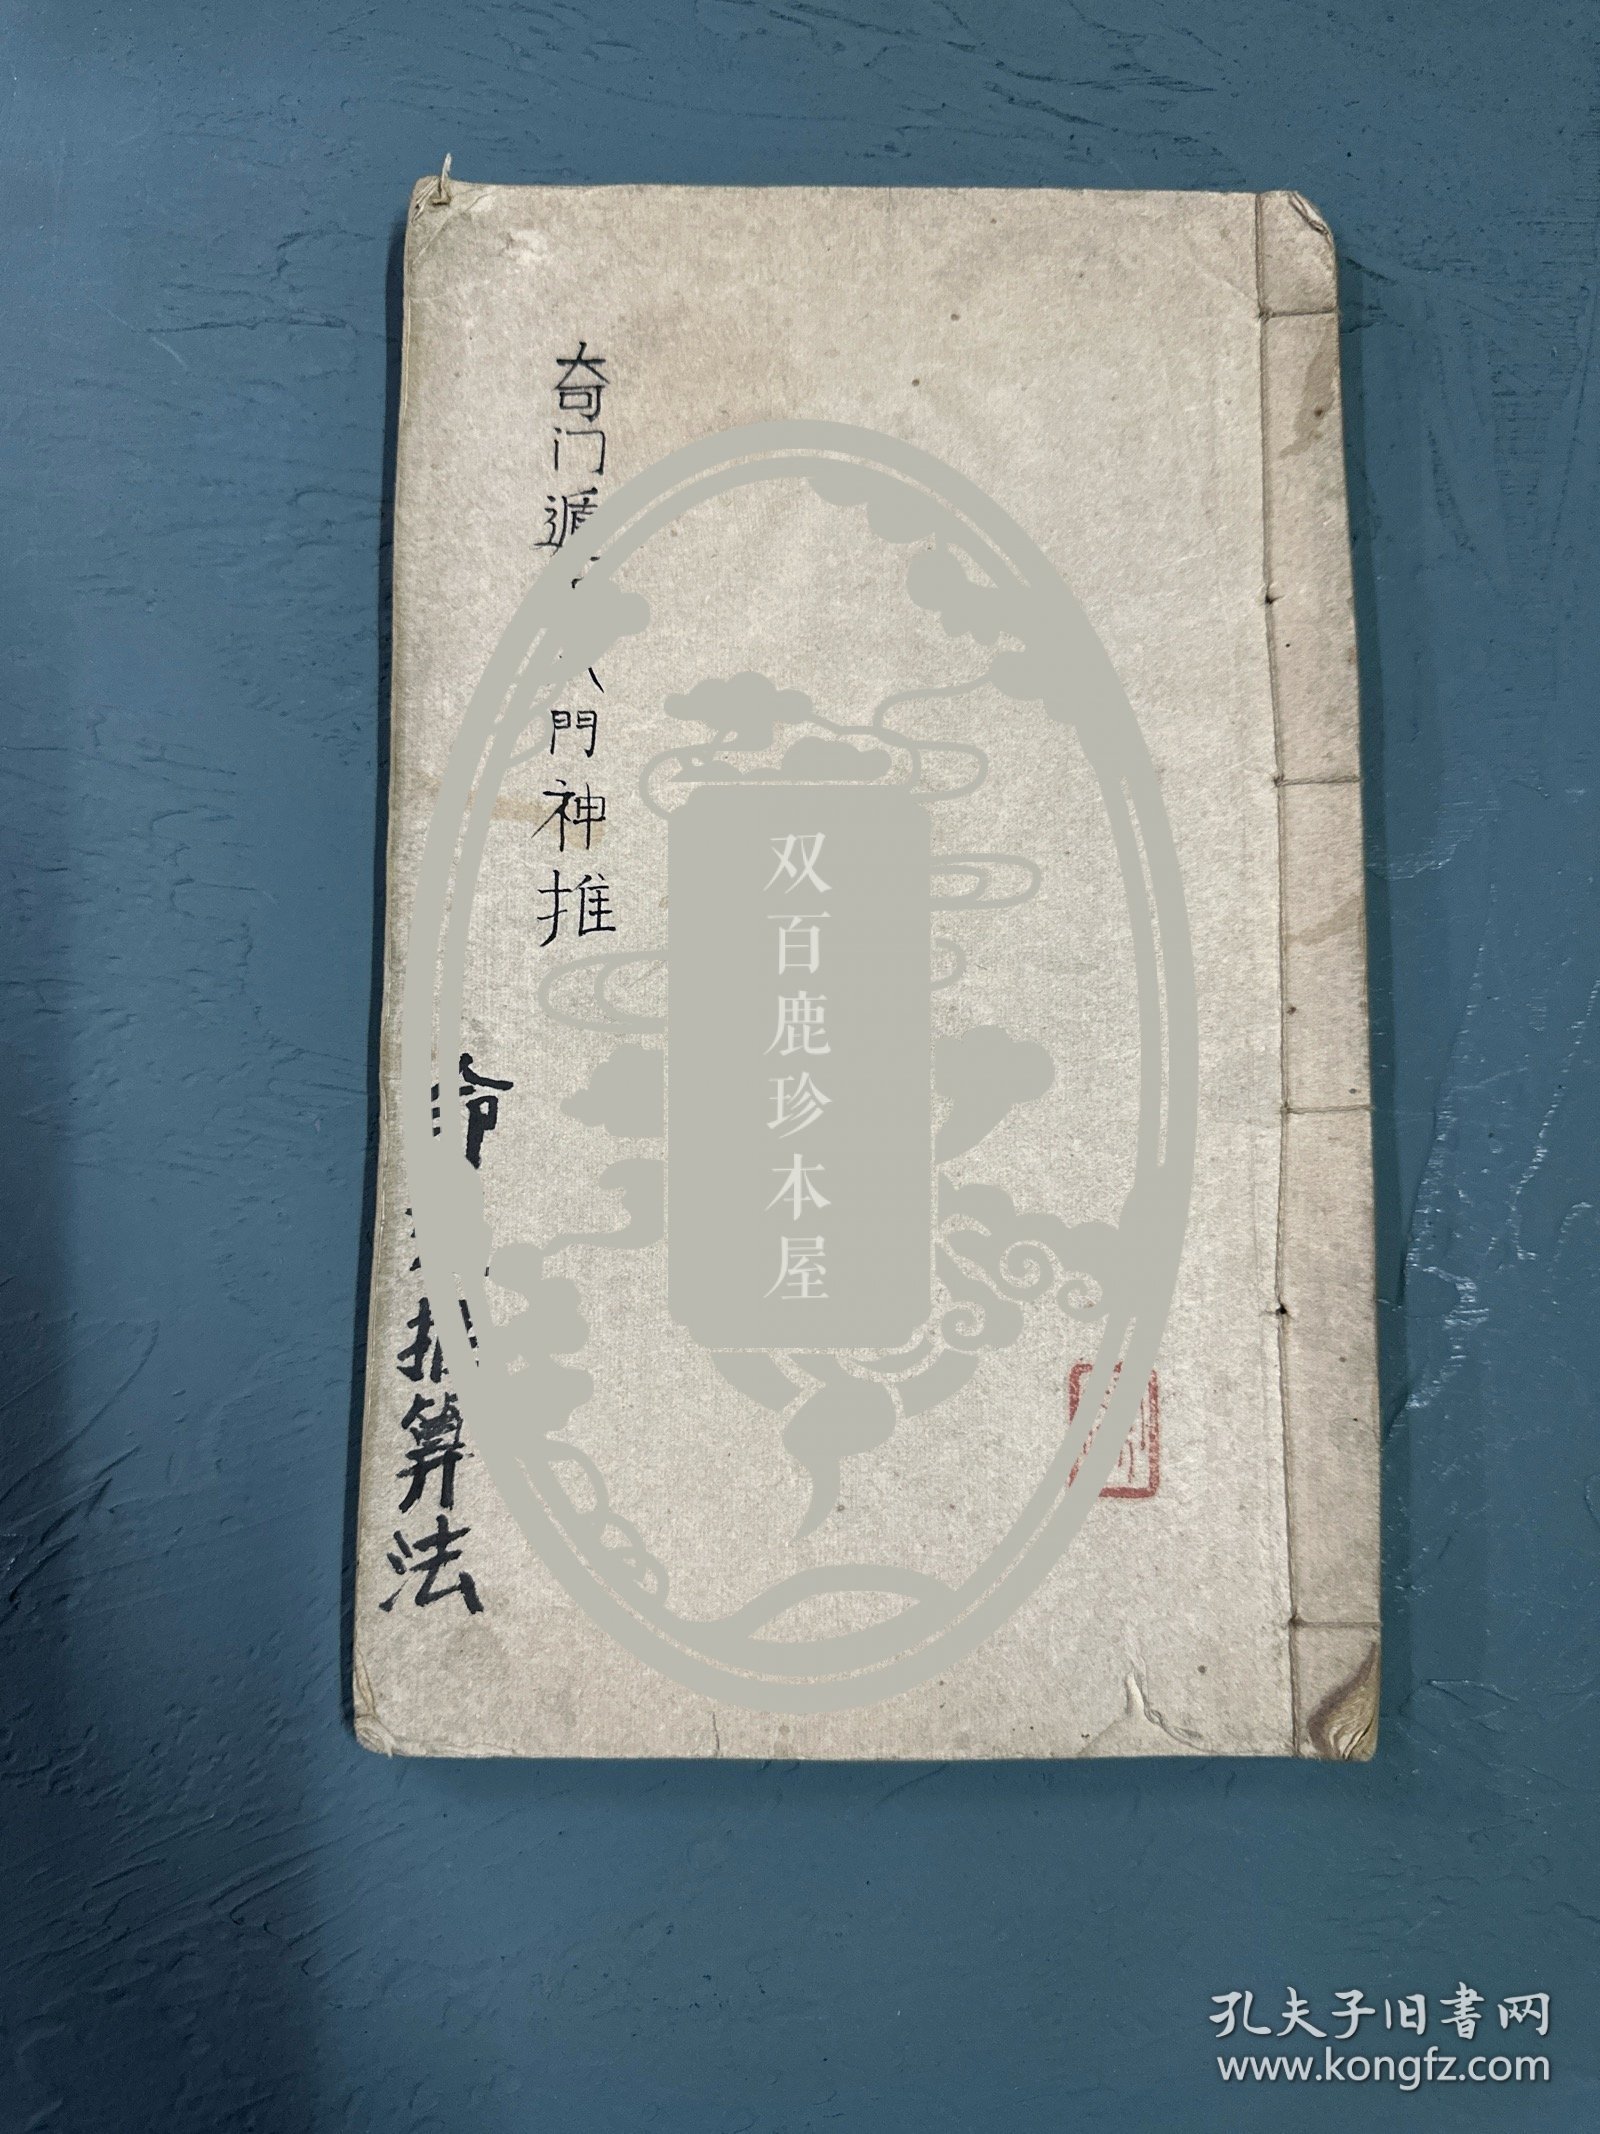 奇门遁 門神推
命 推算法
双百鹿珍本屋
孔夫子旧书网
www.kongfz.com